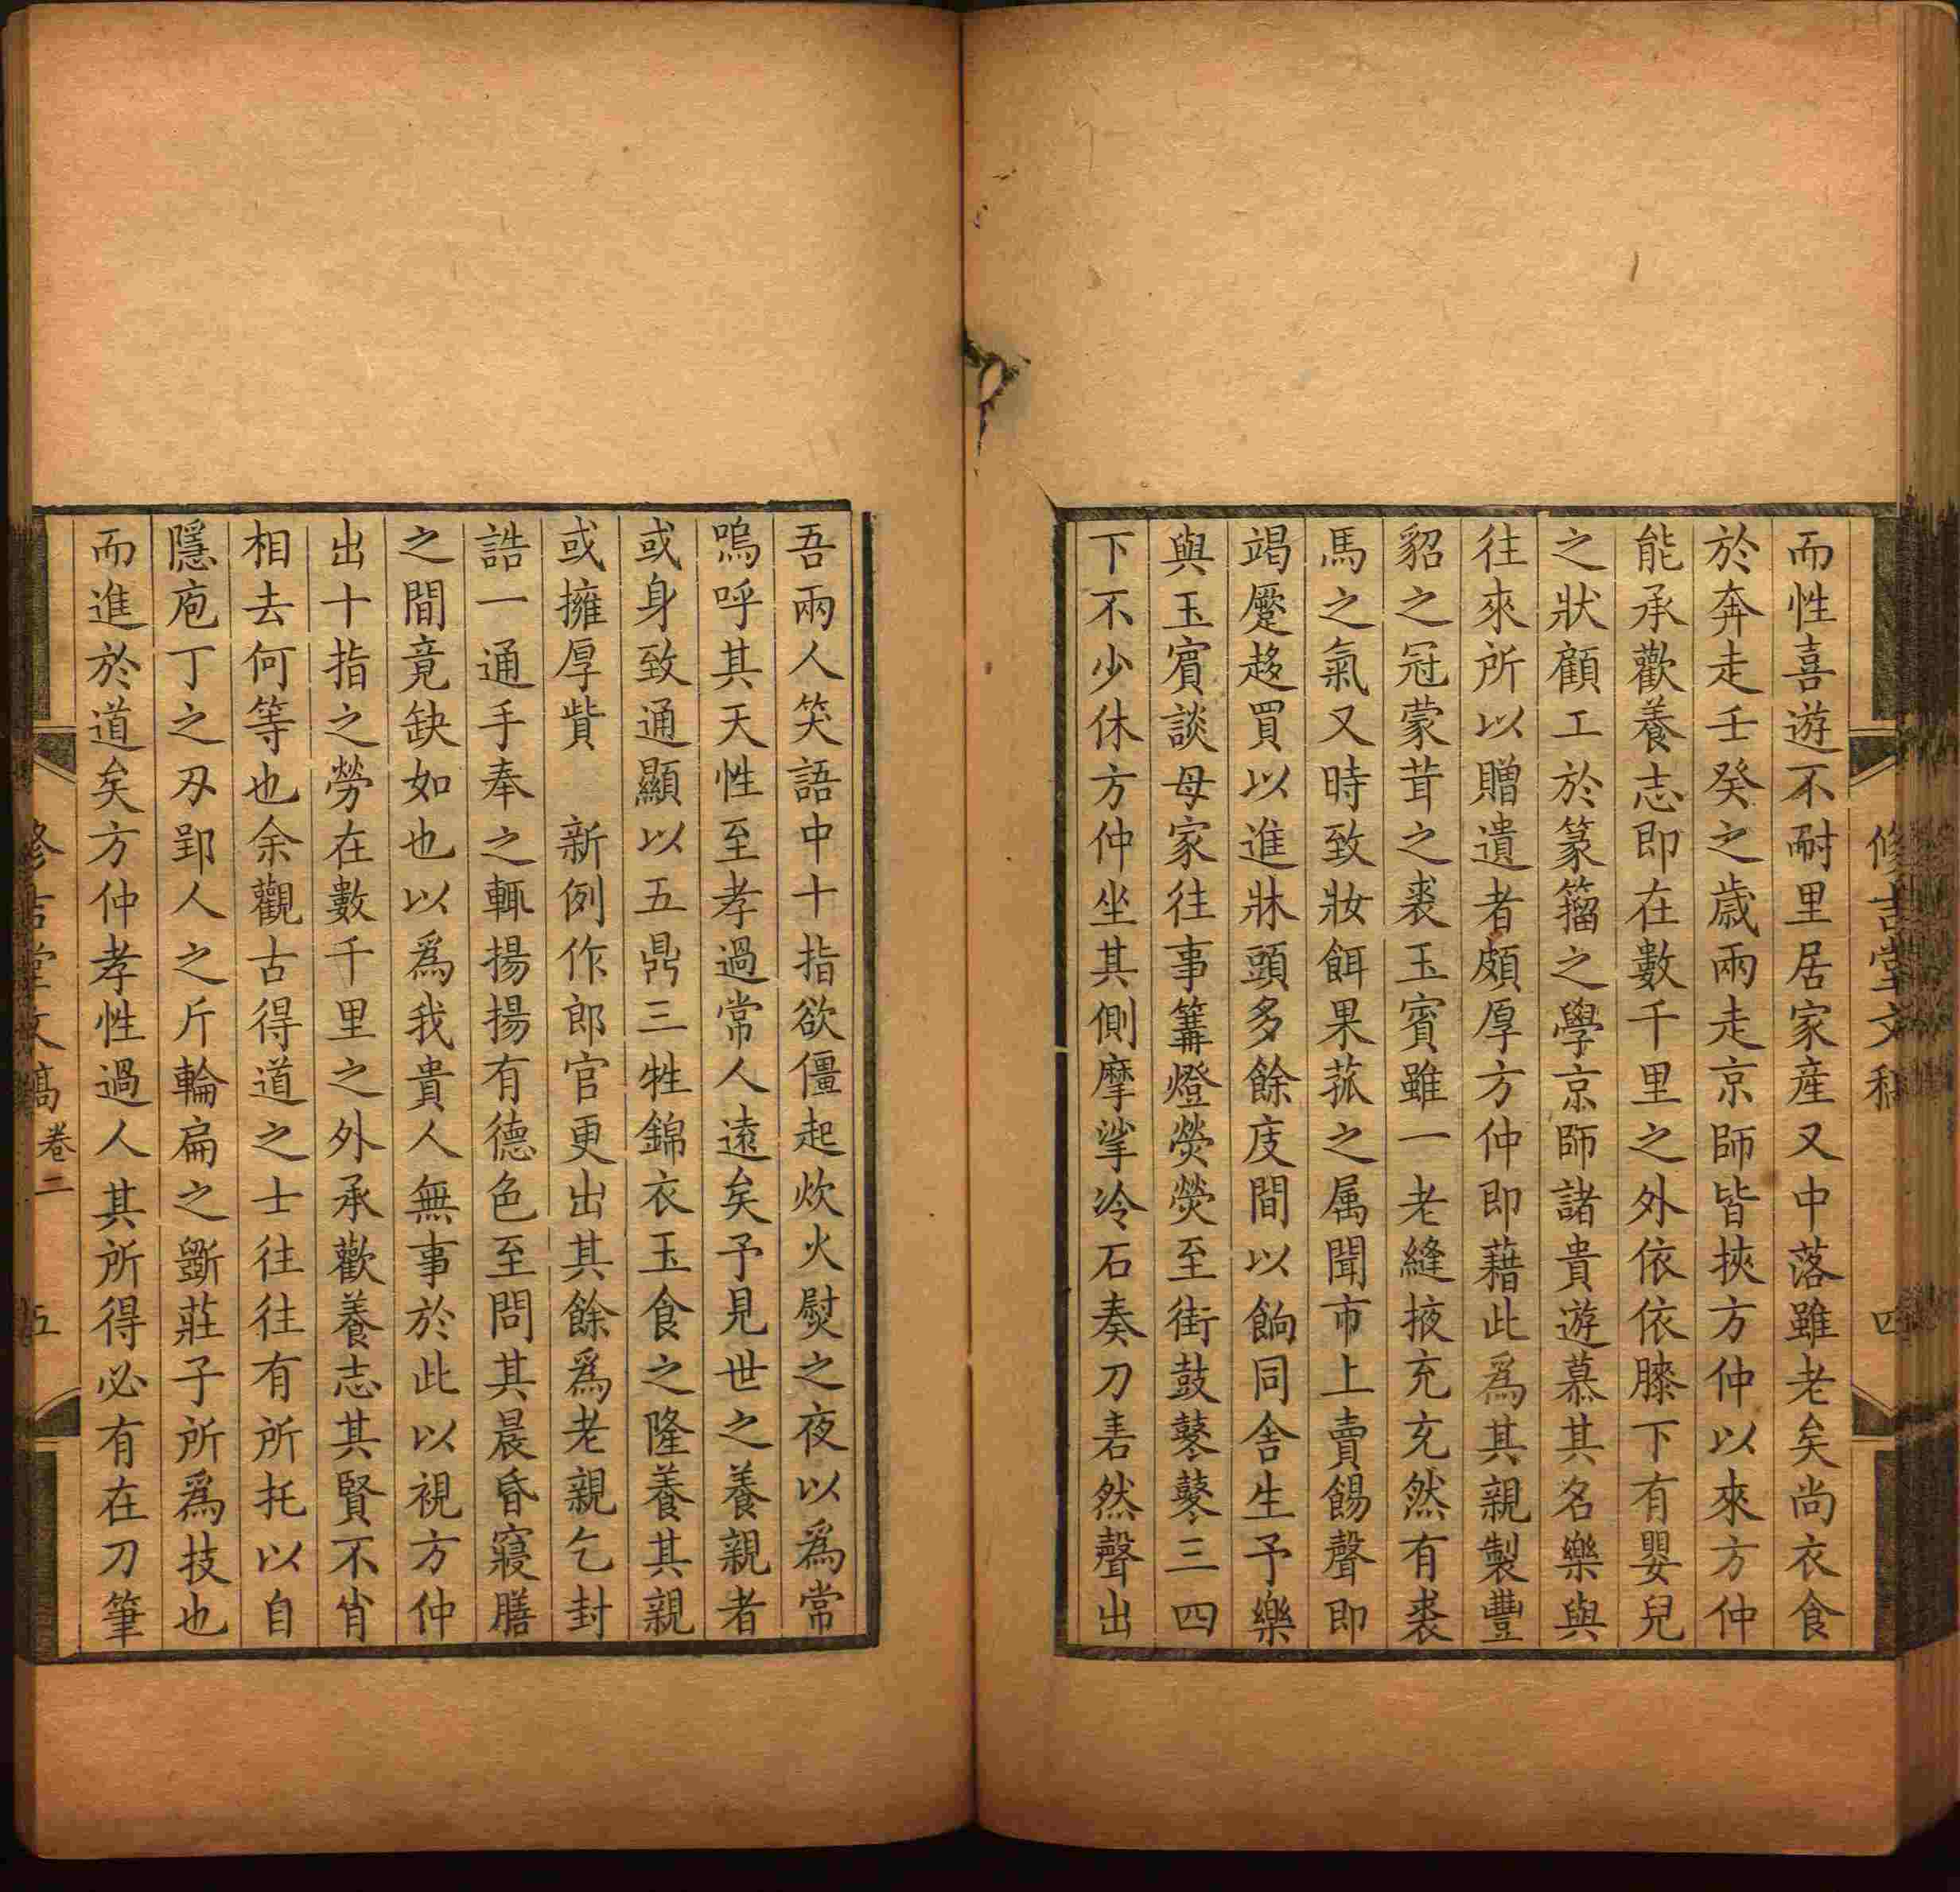 修吉堂文稿 四
而性喜遊不耐里居家産又中落雖老矣尚衣食
於奔走壬癸之歳兩走京師皆挾方仲以來方仲
能承歡養志即在數千里之外依依膝下有嬰兒
之狀顧工於篆籀之學京師諸貴遊慕其名樂與
往來所以贈遺者頗厚方仲即藉此爲其親製豐
貂之冠蒙茸之裘玉賓雖一老縫掖充充然有裘
馬之氣又時致妝餌果蓏之属聞市上賣餳聲即
竭蹷趍買以進牀頭多餘庋間以餉同舍生予樂
與玉賓談母家往事篝燈熒熒至街鼓鼕鼕三四
下不少休方仲坐其側摩挲冷石奏刀砉然聲出
吾兩人笑語中十指欲僵起炊火熨之夜以爲常
嗚呼其天性至孝過常人遠矣予見世之養親者
或身致通顯以五鼎三牲錦衣玉食之隆養其親
或擁厚貲 新例作郎官更出其餘爲老親乞封
誥一通手奉之輒揚揚有德色至問其晨昏寢膳
之間竟缺如也以爲我貴人無事於此以視方仲
出十指之勞在數千里之外承歡養志其賢不肖
相去何等也余觀古得道之士往往有所托以自
隱庖丁之刃郢人之斤輪扁之斲莊子所爲技也
而進於道矣方仲孝性過人其所得必有在刀筆
修吉堂文稿 卷二 五